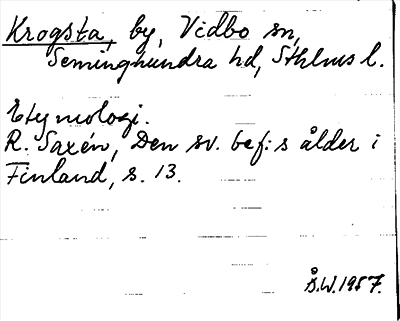 Krogsta, by, Vidbo sn,
Seminghundra hd, Sthlms l.
Etymologi.
R. Saxén, Den sv. bef:s ålder i
Finland, s. 13.
Å.W. 1957.